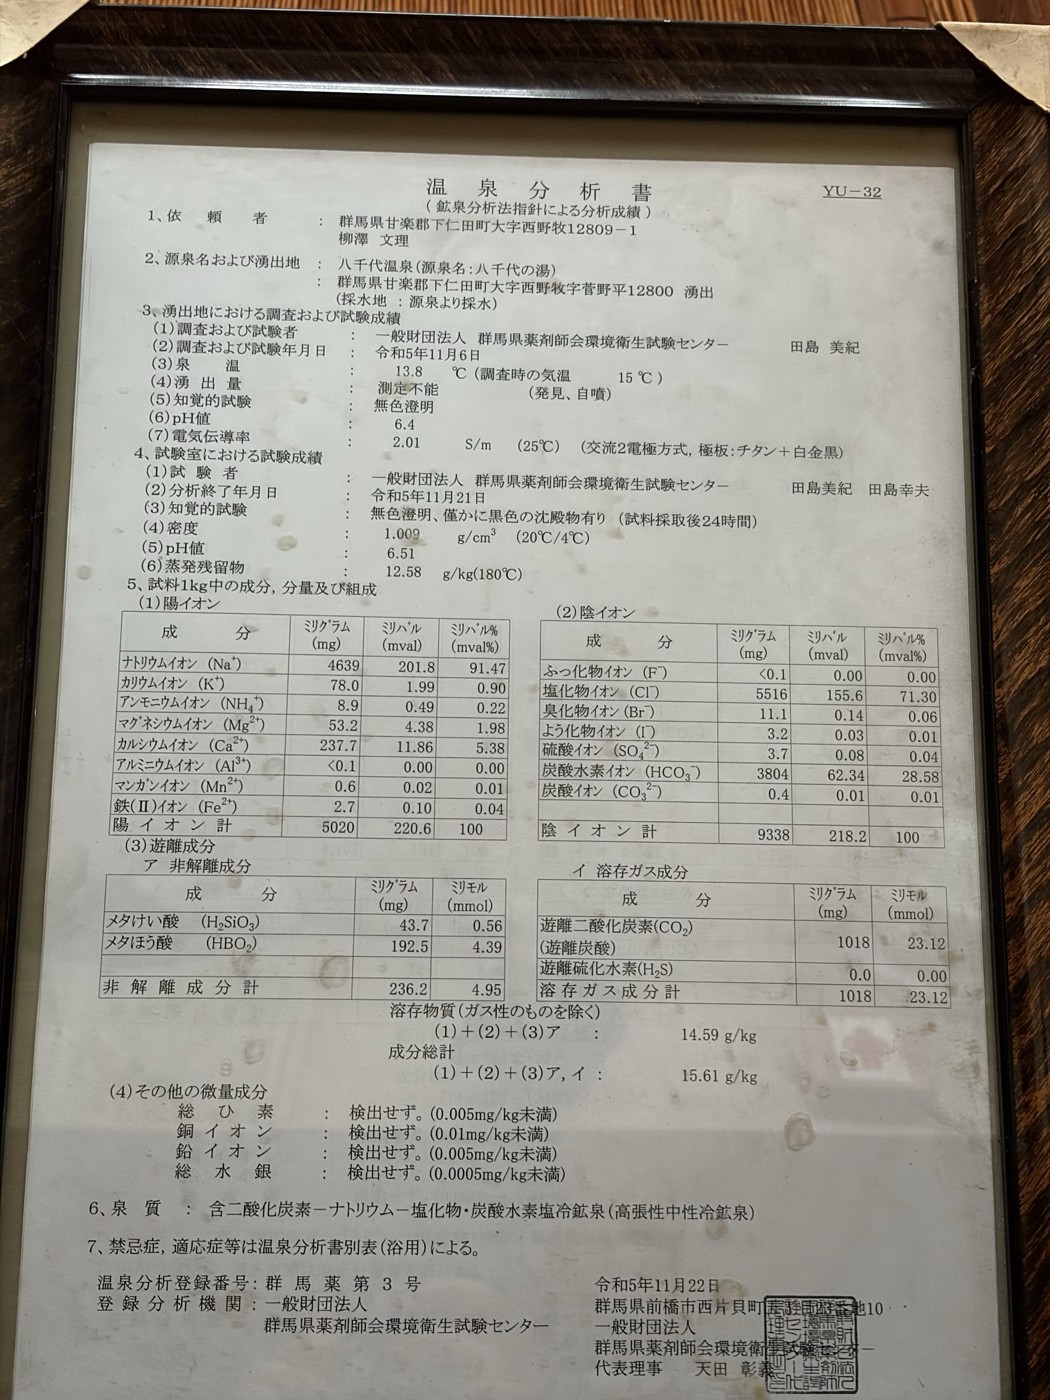 温泉分析書
YU－32
（鉱泉分析法指針による分析成績）
1、依頼者 ： 群馬県甘楽郡下仁田町大字西野牧12809－1
柳澤 文理
2、源泉名および湧出地 ： 八千代温泉（源泉名：八千代の湯）
： 群馬県甘楽郡下仁田町大字西野牧字菅野平12800 湧出
（採水地 ：源泉より採水）
3、湧出地における調査および試験成績
(1)調査および試験者 ： 一般財団法人 群馬県薬剤師会環境衛生試験センター 田島 美紀
(2)調査および試験年月日 ： 令和5年11月6日
(3)泉温 ： 13.8 ℃（調査時の気温 15℃）
(4)湧出量 ： 測定不能 （発見、自噴）
(5)知覚的試験 ： 無色澄明
(6)pH値 ： 6.4
(7)電気伝導率 ： 2.01 S/m （25℃） （交流2電極方式，極板：チタン＋白金黒）
4、試験室における試験成績
(1)試験者 ： 一般財団法人 群馬県薬剤師会環境衛生試験センター 田島美紀 田島幸夫
(2)分析終了年月日 ： 令和5年11月21日
(3)知覚的試験 ： 無色澄明、僅かに黒色の沈殿物有り （試料採取後24時間）
(4)密度 ： 1.009 g/cm³ （20℃/4℃）
(5)pH値 ： 6.51
(6)蒸発残留物 ： 12.58 g/kg(180℃)
5、試料1kg中の成分，分量及び組成
(1)陽イオン
成分 ﾐﾘｸﾞﾗﾑ (mg) ﾐﾘﾊﾞﾙ (mval) ﾐﾘﾊﾞﾙ% (mval%)
ナトリウムイオン (Na⁺) 4639 201.8 91.47
カリウムイオン (K⁺) 78.0 1.99 0.90
アンモニウムイオン (NH₄⁺) 8.9 0.49 0.22
マグネシウムイオン (Mg²⁺) 53.2 4.38 1.98
カルシウムイオン (Ca²⁺) 237.7 11.86 5.38
アルミニウムイオン (Al³⁺) <0.1 0.00 0.00
マンガンイオン (Mn²⁺) 0.6 0.02 0.01
鉄(Ⅱ)イオン (Fe²⁺) 2.7 0.10 0.04
陽イオン計 5020 220.6 100
(2)陰イオン
成分 ﾐﾘｸﾞﾗﾑ (mg) ﾐﾘﾊﾞﾙ (mval) ﾐﾘﾊﾞﾙ% (mval%)
ふっ化物イオン (F⁻) <0.1 0.00 0.00
塩化物イオン (Cl⁻) 5516 155.6 71.30
臭化物イオン (Br⁻) 11.1 0.14 0.06
よう化物イオン (I⁻) 3.2 0.03 0.01
硫酸イオン (SO₄²⁻) 3.7 0.08 0.04
炭酸水素イオン (HCO₃⁻) 3804 62.34 28.58
炭酸イオン (CO₃²⁻) 0.4 0.01 0.01
陰イオン計 9338 218.2 100
(3)遊離成分
ア 非解離成分
成分 ﾐﾘｸﾞﾗﾑ (mg) ﾐﾘﾓﾙ (mmol)
メタけい酸 (H₂SiO₃) 43.7 0.56
メタほう酸 (HBO₂) 192.5 4.39
非解離成分計 236.2 4.95
イ 溶存ガス成分
成分 ﾐﾘｸﾞﾗﾑ (mg) ﾐﾘﾓﾙ (mmol)
遊離二酸化炭素(CO₂)
(遊離炭酸) 1018 23.12
遊離硫化水素(H₂S) 0.0 0.00
溶存ガス成分計 1018 23.12
溶存物質（ガス性のものを除く）
(1)＋(2)＋(3)ア ： 14.59 g/kg
成分総計
(1)＋(2)＋(3)ア，イ ： 15.61 g/kg
(4)その他の微量成分
総ひ素 ： 検出せず。(0.005mg/kg未満)
銅イオン ： 検出せず。(0.01mg/kg未満)
鉛イオン ： 検出せず。(0.005mg/kg未満)
総水銀 ： 検出せず。(0.0005mg/kg未満)
6、泉質 ： 含二酸化炭素－ナトリウム－塩化物・炭酸水素塩冷鉱泉（高張性中性冷鉱泉）
7、禁忌症，適応症等は温泉分析書別表（浴用）による。
温泉分析登録番号：群馬薬第3号
登録分析機関：一般財団法人
群馬県薬剤師会環境衛生試験センター
令和5年11月22日
群馬県前橋市西片貝町 10
一般財団法人
群馬県薬剤師会環境衛生試験センター
代表理事 天田 彰義